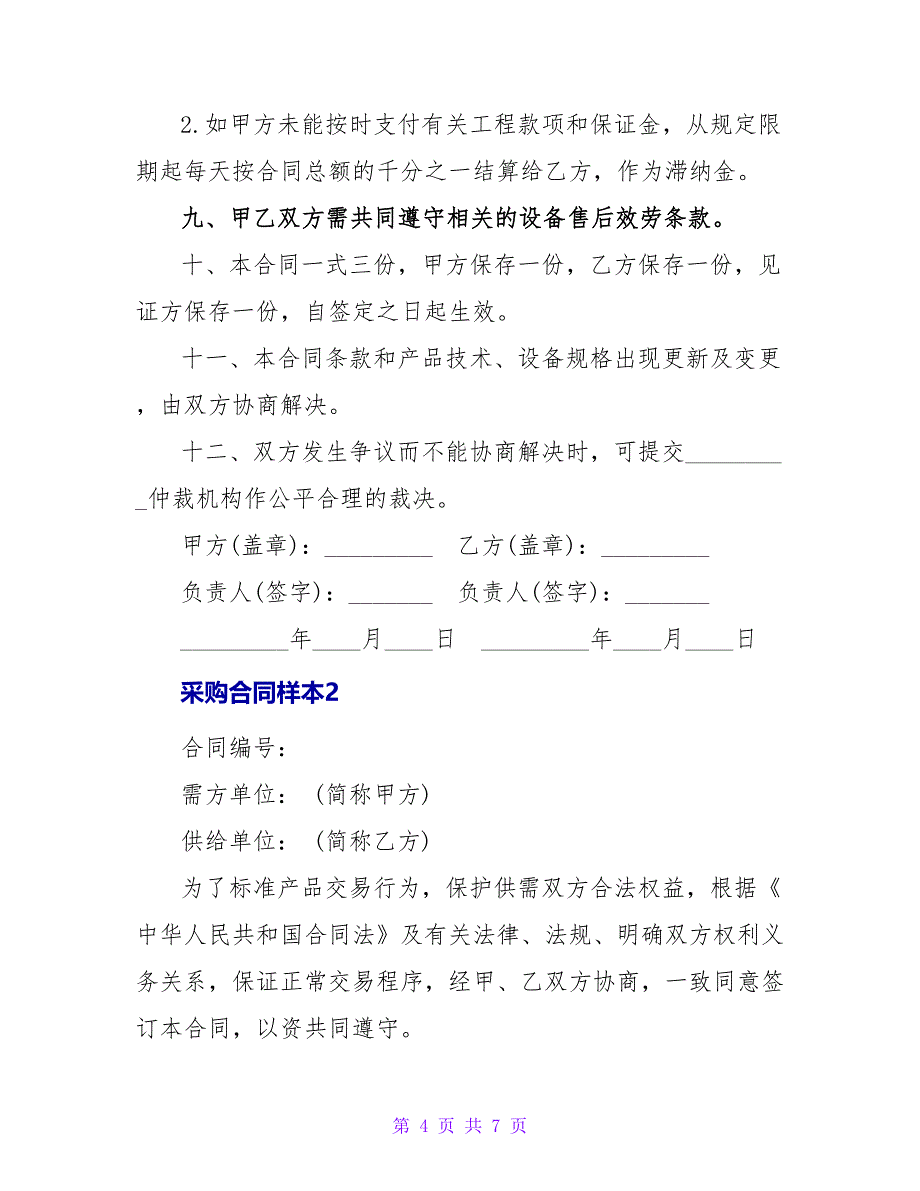 2.如甲方未能按时支付有关工程款项和保证金，从规定限
期起每天按合同总额的千分之一结算给乙方，作为滞纳金。
九、甲乙双方需共同遵守相关的设备售后效劳条款。
十、本合同一式三份，甲方保存一份，乙方保存一份，见
证方保存一份，自签定之日起生效。
十一、本合同条款和产品技术、设备规格出现更新及变更
，由双方协商解决。
十二、双方发生争议而不能协商解决时，可提交________
_仲裁机构作公平合理的裁决。
甲方(盖章)：_________ 乙方(盖章)：_________
负责人(签字)：_______ 负责人(签字)：_______
_________年____月____日 _________年____月____日
采购合同样本2
合同编号：
需方单位： (简称甲方)
供给单位： (简称乙方)
为了标准产品交易行为，保护供需双方合法权益，根据《
中华人民共和国合同法》及有关法律、法规、明确双方权利义
务关系，保证正常交易程序，经甲、乙双方协商，一致同意签
订本合同，以资共同遵守。
第 4 页 共 7 页